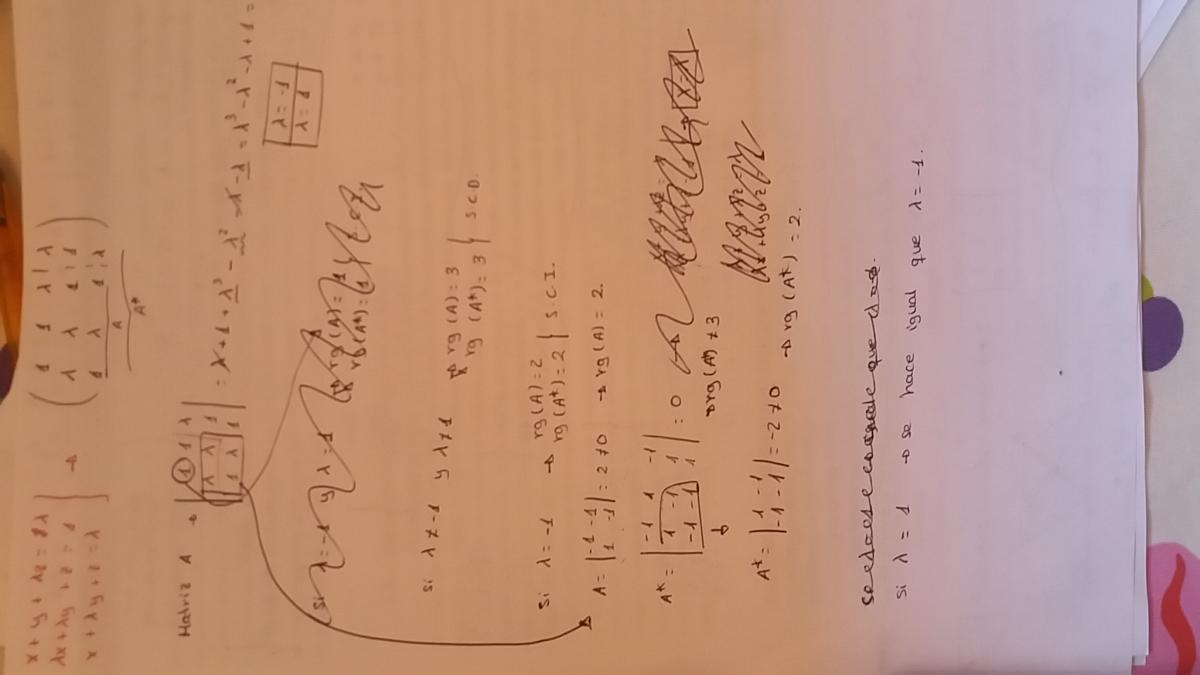 x + y + λz = λ
λx + λy + z = 1
x + λy + z = λ
→ ( 1 1 λ | λ
λ λ 1 | 1
1 λ 1 | λ )
A
A*
Matriz A → | 1 1 λ
λ λ 1
1 λ 1 | = λ + 1 + λ³ - λ² - λ - λ = λ³ - λ² - λ + 1 =
λ = -1
λ = 1
Si λ = -1 y λ = 1
rg(A) =
rg(A*) =
Si λ ≠ -1 y λ ≠ 1 → rg(A) = 3
rg(A*) = 3 } S.C.D.
Si λ = -1 → rg(A) = 2
rg(A*) = 2 } S.C.I.
A = | -1 -1
1 -1 | = 2 ≠ 0 → rg(A) = 2.
A* = | -1 1 -1
1 -1 1
-1 -1 1 | = 0
→ rg(A*) ≠ 3
A* = | 1 -1
-1 -1 | = -2 ≠ 0 → rg(A*) = 2.
Si λ = 1 → se hace igual que λ = -1.